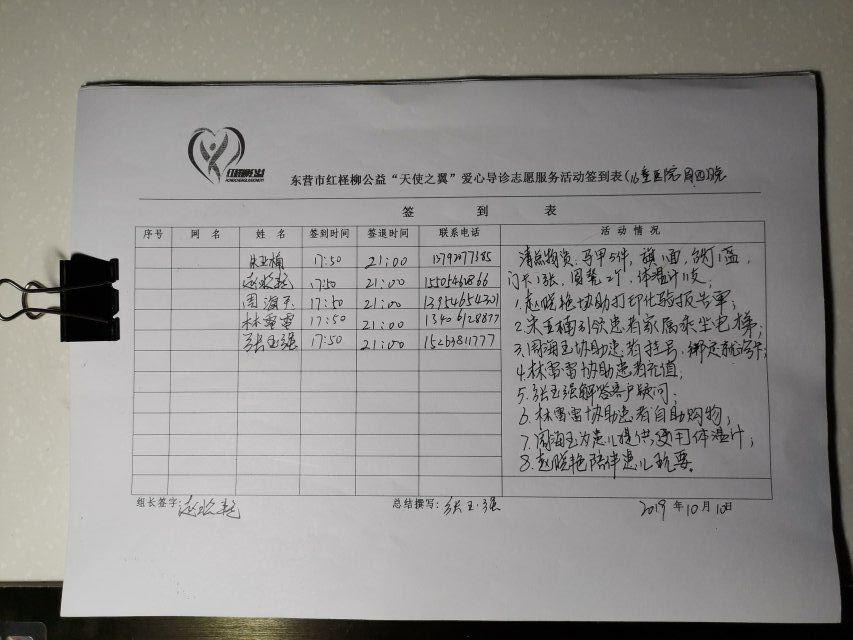 红柽柳公益
东营市红柽柳公益“天使之翼”爱心导诊志愿服务活动签到表(儿童医院周四)晚
签 到 表
序号 网 名 姓 名 签到时间 签退时间 联系电话 活动情况
17:50 21:00 清点物资、马甲5件,旗1面,
赵晓艳 17:50 21:00 门卡1张,圆凳2个,体温计11支;
周海玉 17:50 21:00 13954654301 1.赵晓艳协助打印化验报告单;
林雷雷 17:50 21:00 13406128877 2.宋玉楠引领患者家属乘坐电梯;
张玉强 17:50 21:00 15263811777 3.周海玉协助患者挂号,绑定就诊卡;
4.林雷雷协助患者充值,
5.张玉强解答客户疑问;
6.林雷雷协助患者自助购物;
7.周海玉为患儿提供使用体温计;
8.赵晓艳陪伴患儿玩耍。
组长签字:赵晓艳 总结撰写:张玉强 2019年10月10日